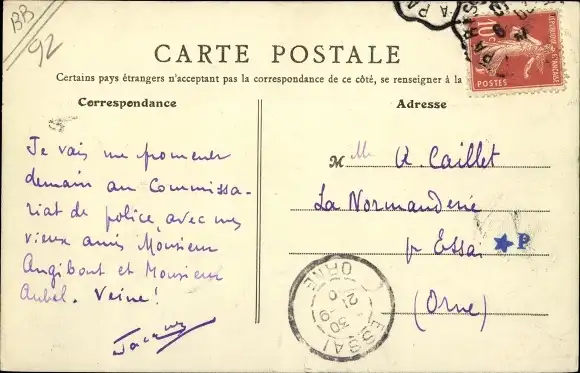 BB
92
CARTE POSTALE
Certains pays étrangers n'acceptant pas la correspondance de ce côté, se renseigner à la
Correspondance
Adresse
Je vais me promener
demain au Commissa-
riat de police avec mes
vieux amis Monsieur
Angibout et Monsieur
Aubel. Veine!
Jacques
M lle R. Caillet
La Normanderie
pr Essai
(Orne)
P
ESSAI
ORNE
30-9
PARIS
10c
REPUBLIQUE FRANÇAISE
POSTES